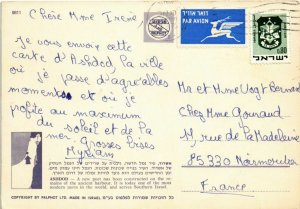 8011
Chère Mme Irène,
Je vous envoi cette
carte d'Ashdod la ville
où je passe d'agréables
moments et où je
profite au maximum
du soleil et de la
mer. Grosses bises
Myriam
דואר אויר
PAR AVION
ישראל
0.80
Mr et Mme Voyt Bernard
Chez Mme Gounaud
rue de la Madeleine
85330 Noirmoutier
France
ASHDOD — A new port has been constructed on the re-
mains of the ancient harbour. It is today one of the most
modern ports in the world, and serves Southern Israel
COPYRIGHT BY PALPHOT LTD. MADE IN ISRAEL
כל הזכויות שמורות לפלפוט בע"מ